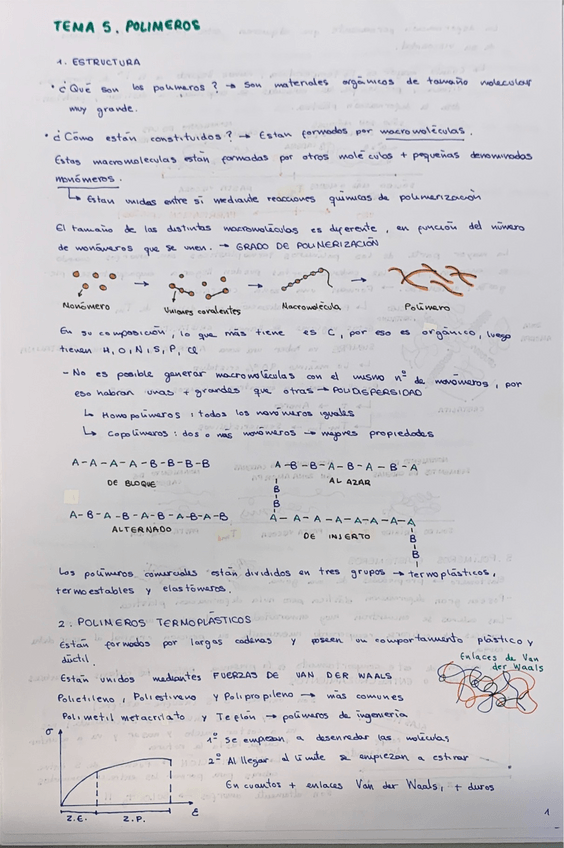 TEMA 5. POLIMEROS
1. ESTRUCTURA
• ¿Qué son los polímeros? → Son materiales orgánicos de tamaño molecular
muy grande.
• ¿Cómo están constituidos? → Estan formados por macromoléculas.
Estas macromoleculas están formadas por otros moléculas + pequeñas denominadas
monómeros.
↳ Estan unidas entre si mediante reacciones químicas de polimerización
El tamaño de las distintas macromoléculas es diferente, en función del número
de monómeros que se unen. → GRADO DE POLIMERIZACIÓN
Monómero → Uniones covalentes → Macromolécula → Polímero
En su composición, lo que más tiene es C, por eso es orgánico, luego
tienen H, O, N, S, P, Cl
- No es posible generar macromoléculas con el mismo nº de monómeros, por
eso habran unas + grandes que otras → POLIDISPERSIDAD
↳ Homopolímeros: todos los monómeros iguales
↳ Copolímeros: dos o más monómeros → mejores propiedades
A-A-A-A-B-B-B-B
DE BLOQUE
A-B-B-A-B-A-B-A
AL AZAR
A-B-A-B-A-B-A-B-A-B
ALTERNADO
B
B
A-A-A-A-A-A-A-A
B
B
DE INJERTO
Los polímeros comerciales están divididos en tres grupos → termoplásticos,
termoestables y elastómeros.
2. POLIMEROS TERMOPLÁSTICOS
Están formados por largas cadenas y poseen un comportamiento plástico y
dúctil.
Están unidos mediantes FUERZAS DE VAN DER WAALS
Enlaces de Van
der Waals
Polietileno, Poliestireno y Polipropileno → más comunes
Polimetil metacrilato y Teflón → polímeros de ingeniería
σ
1º Se empiezan a desenredar las moléculas
2º Al llegar al límite se empiezan a estirar
En cuantos + enlaces Van der Waals, + duros
Z.E. Z.P. ε
1